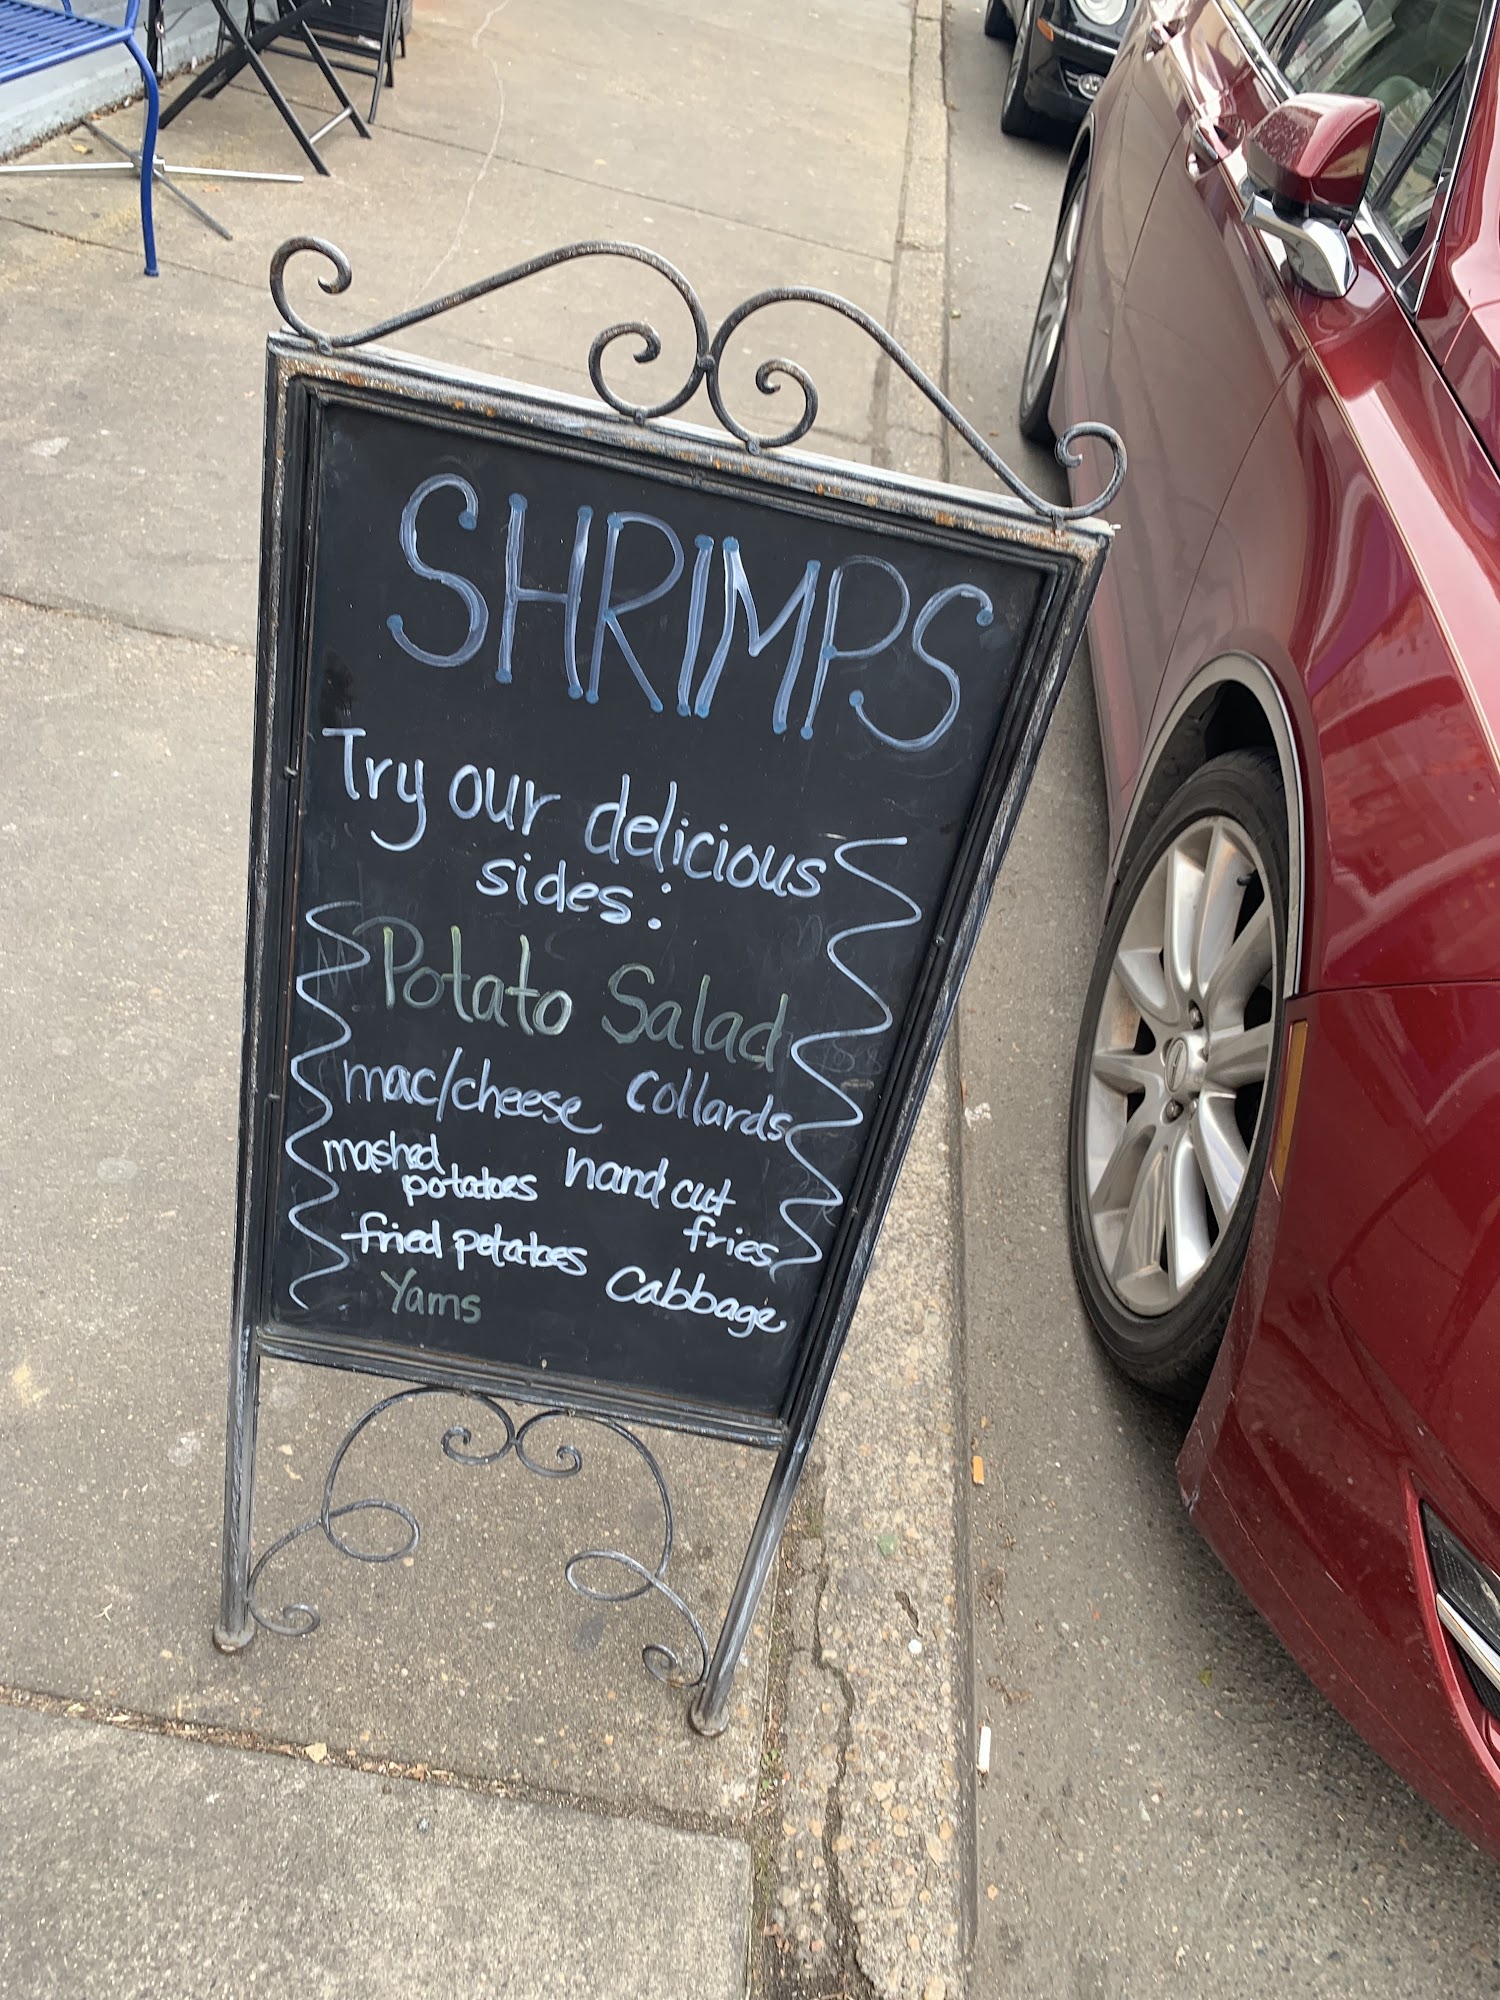 SHRIMPS
Try our delicious
sides:
Potato Salad
mac/cheese collards
mashed
potatoes
hand cut
fries
fried potatoes
cabbage
Yams